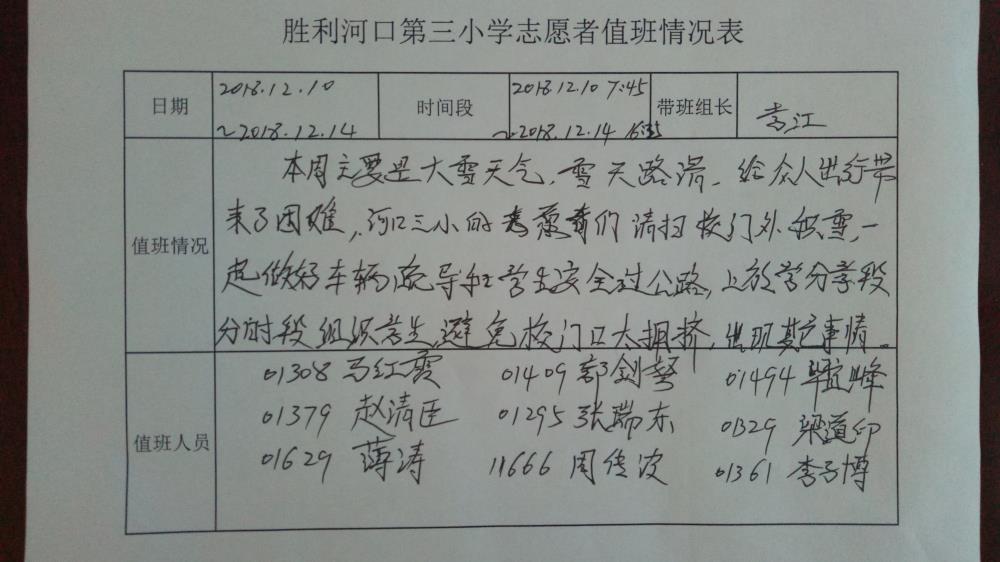 胜利河口第三小学志愿者值班情况表
日期 2018.12.10 ~2018.12.14 时间段 2018.12.10 7:45 ~2018.12.14 带班组长 常江
值班情况
本周主要是大雪天气,雪天路滑,给众人出行带
来了困难,河口三小的 们清扫校门外积雪,一
起做好车辆疏导和学生安全过公路,上放学分学段
分时段组织学生,避免校门口太拥挤,出现其它事情。
值班人员
01308 马红霞 01409 郭剑 01494 峰
01379 赵清臣 01295 张瑞东 01329 梁道印
01629 薄涛 11666 周传波 01361 李子博